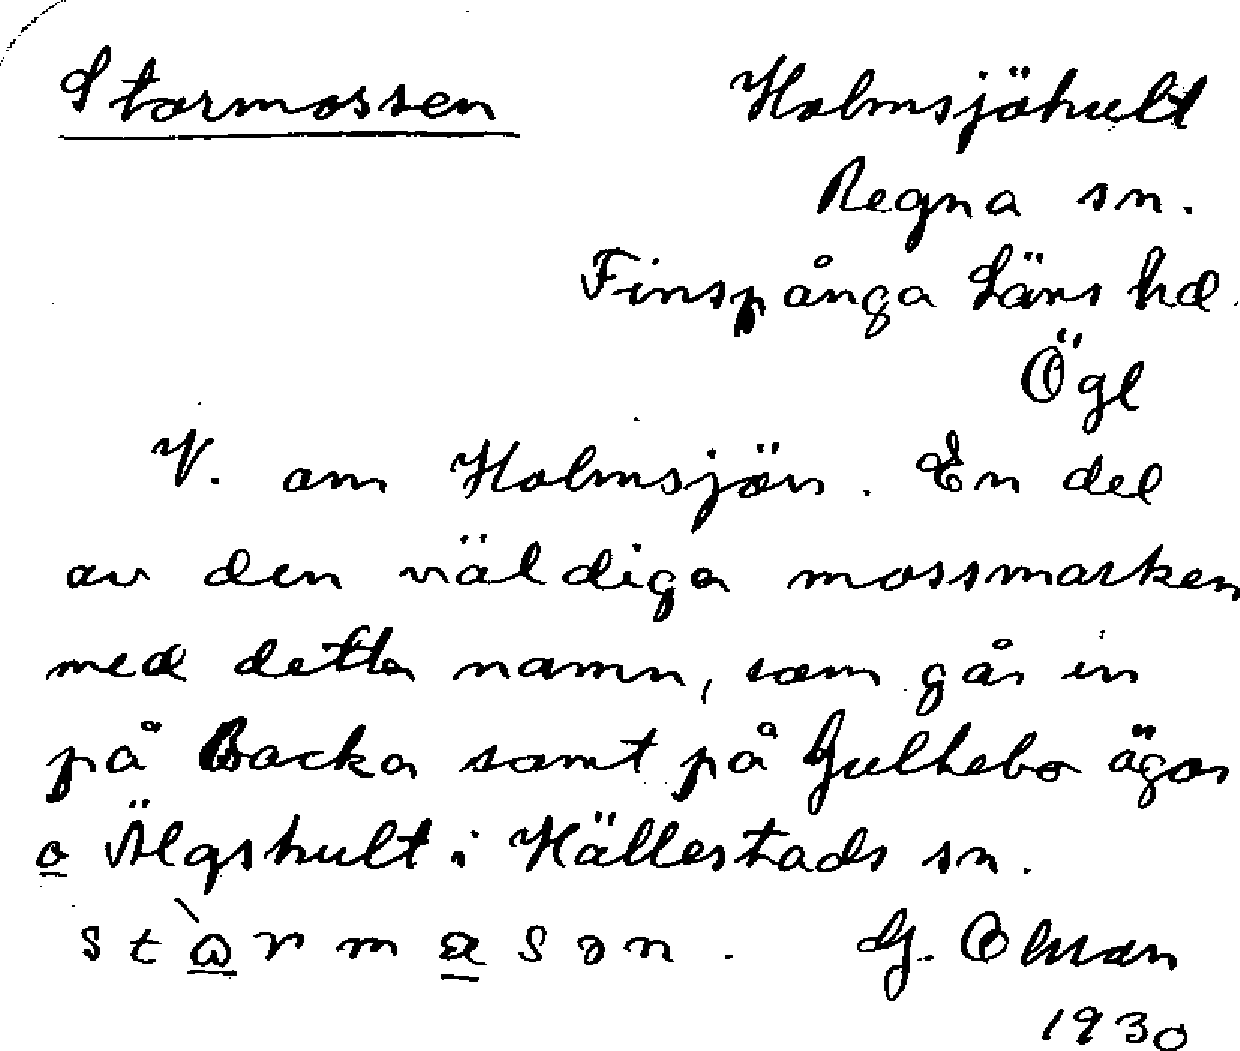 Stormossen Holmsjöhult
Regna sn.
Finspånga Läns hd.
Ögl
V. om Holmsjön. En del
av den väldiga mossmarken
med detta namn, som går in
på Backa samt på Gullebo ägor
o Älgshult i Hällestads sn.
G. Ohman
1930